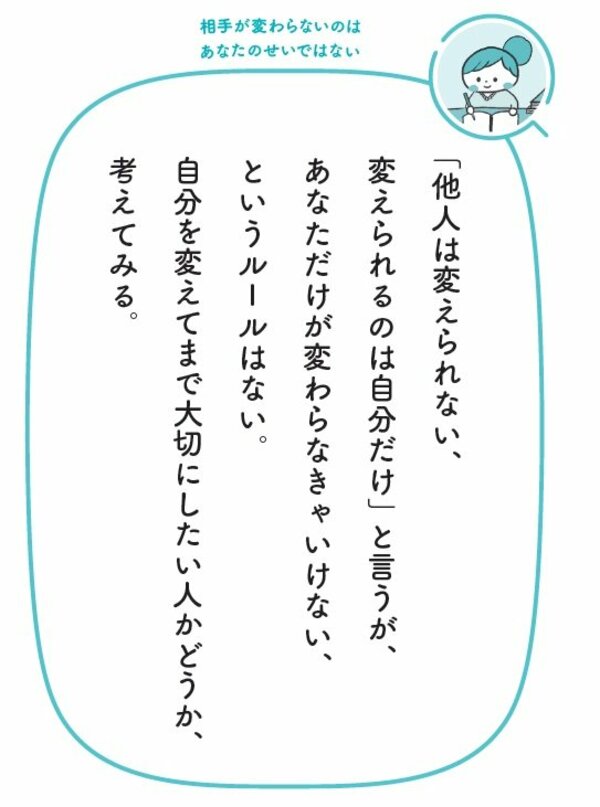 相手が変わらないのは
あなたのせいではない
「他人は変えられない、
変えられるのは自分だけ」と言うが、
あなただけが変わらなきゃいけない、
というルールはない。
自分を変えてまで大切にしたい人かどうか、
考えてみる。